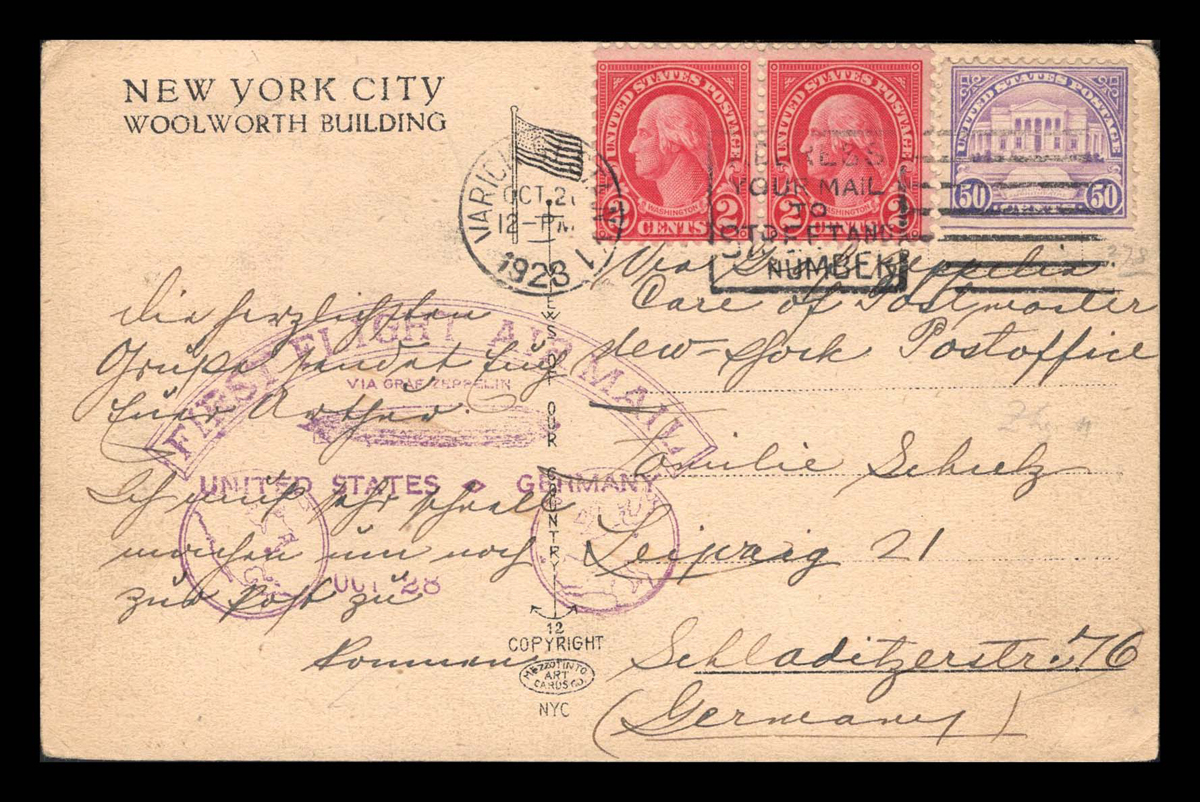 NEW YORK CITY
WOOLWORTH BUILDING
UNITED STATES POSTAGE
WASHINGTON
2 CENTS 2
UNITED STATES POSTAGE
WASHINGTON
2 CENTS 2
UNITED STATES POSTAGE
50 50
VARICK
OCT. 2
12-PM
1928
YOUR MAIL
TO
STREET AND
NUMBER
die herzlichsten
Grüße sendet Euch
Euer Arthur.
Ich muß sehr schnell
machen um noch
zur Post zu
kommen
FIRST FLIGHT AIR MAIL
VIA GRAF ZEPPELIN
UNITED STATES GERMANY
OCT 28
VIEWS OF OUR COUNTRY
12
COPYRIGHT
MEZZOTINTO
ART
CARDS CO.
NYC
Via Graf Zeppelin
Care of Postmaster
New-York Postoffice
Familie Schulz
Leipzig 21
Schladitzerstr. 76
(Germany)